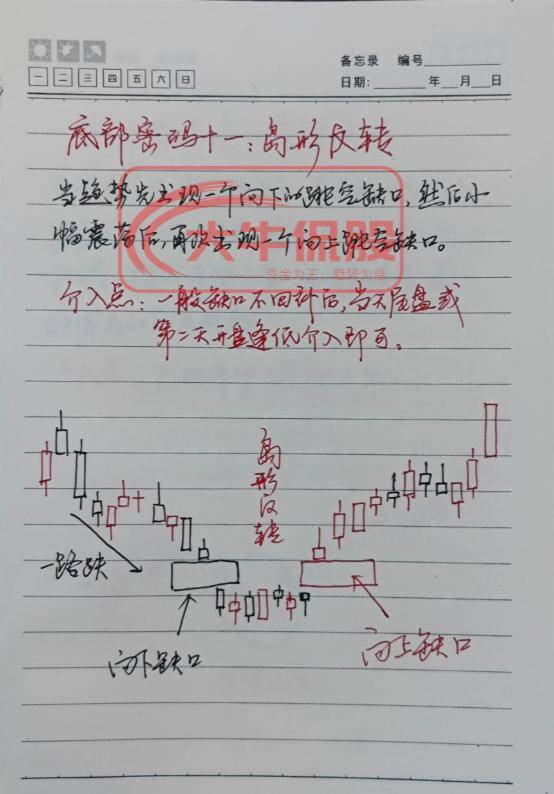 备忘录 编号
一 二 三 四 五 六 日
日期: 年 月 日
底部密码十一:岛形反转
当趋势先出现一个向下的跳空缺口,然后小
幅震荡后,再次出现一个向上跳空缺口。
大牛侃股
资金为王,趋势为皇
介入点:一般缺口不回补后,当天尾盘或
第二天开盘逢低介入即可。
岛形反转
一路跌
向下缺口
向上缺口